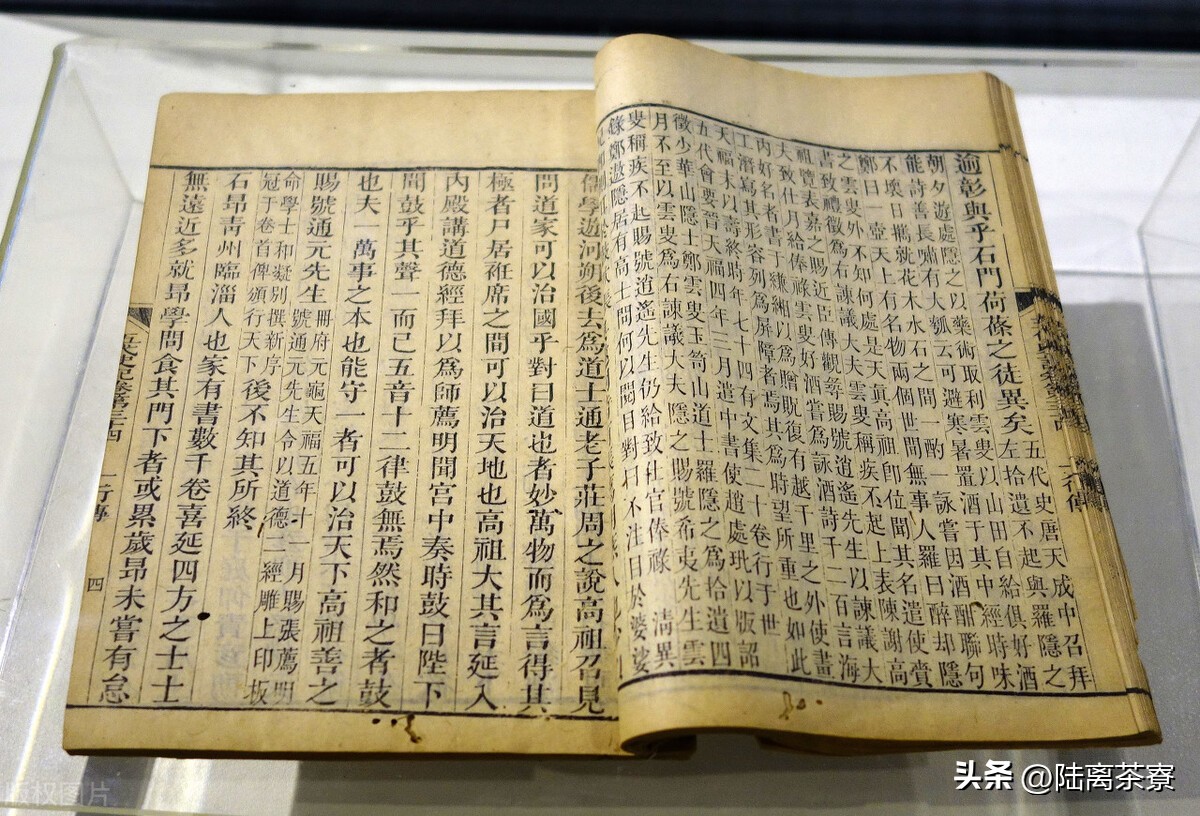 逾彰與乎石門荷蓧之徒異矣
五代史唐天成中召拜
左拾遺不起與羅隱之
朝夕遊處隱之以藥術取利雲叟以山田自給俱好酒
能詩善長嘯有大瓠云可避寒暑置酒于其中經時味
不壞日攜就花木水石之間一酌一詠嘗因酒酣聯句
鄭曰一壺天上有名物兩個世間無事人羅曰醉却隱
之雲叟外不知何處是天真高祖即位聞其名遣使賞
書致禮徵為右諫議大夫雲叟稱疾不起上表陳謝高
祖覽表嘉之賜近臣傳觀尋賜號逍遙先生以諫議大
夫致仕月給俸祿雲叟好酒嘗為詠酒詩千二百言海
內好名者書于縑緗以為贈貺復有越千里之外使畫
工潛寫其形容列為屏障者焉其為時望所重也如此
天福末以壽終時年七十四有文集二十卷行于世
五代會要晉天福四年二月遣中書使趙處玭以版詔
徵少華山隱士鄭雲叟玉笥山道士羅隱之為拾遺四
月不至以雲叟為右諫議大夫隱之賜號希夷先生雲
叟稱疾不起賜號逍遙先生仍給致仕官俸祿 清異
錄鄭遨隱居有高士問何以閱目對曰不注目於婆娑
儒學遊河朔後去為道士通老子莊周之說高祖召見
問道家可以治國乎對曰道也者妙萬物而為言得其
極者尸居袵席之間可以治天地也高祖大其言延入
內殿講道德經拜以為師薦明聞宮中奏時鼓曰陛下
聞鼓乎其聲一而已五音十二律鼓無焉然和之者鼓
也夫一萬事之本也能守一者可以治天下高祖善之
賜號通元先生
冊府元龜天福五年十一月賜張薦明
號通元先生令以道德二經雕上印板
命學士和凝別撰新序
冠于卷首俾頒行天下
後不知其所終
石昂靑州臨淄人也家有書數千卷喜延四方之士士
無遠近多就昂學問食其門下者或累歲昂未嘗有怠
一行傳
四
版权图片
头条 @陆离茶寮